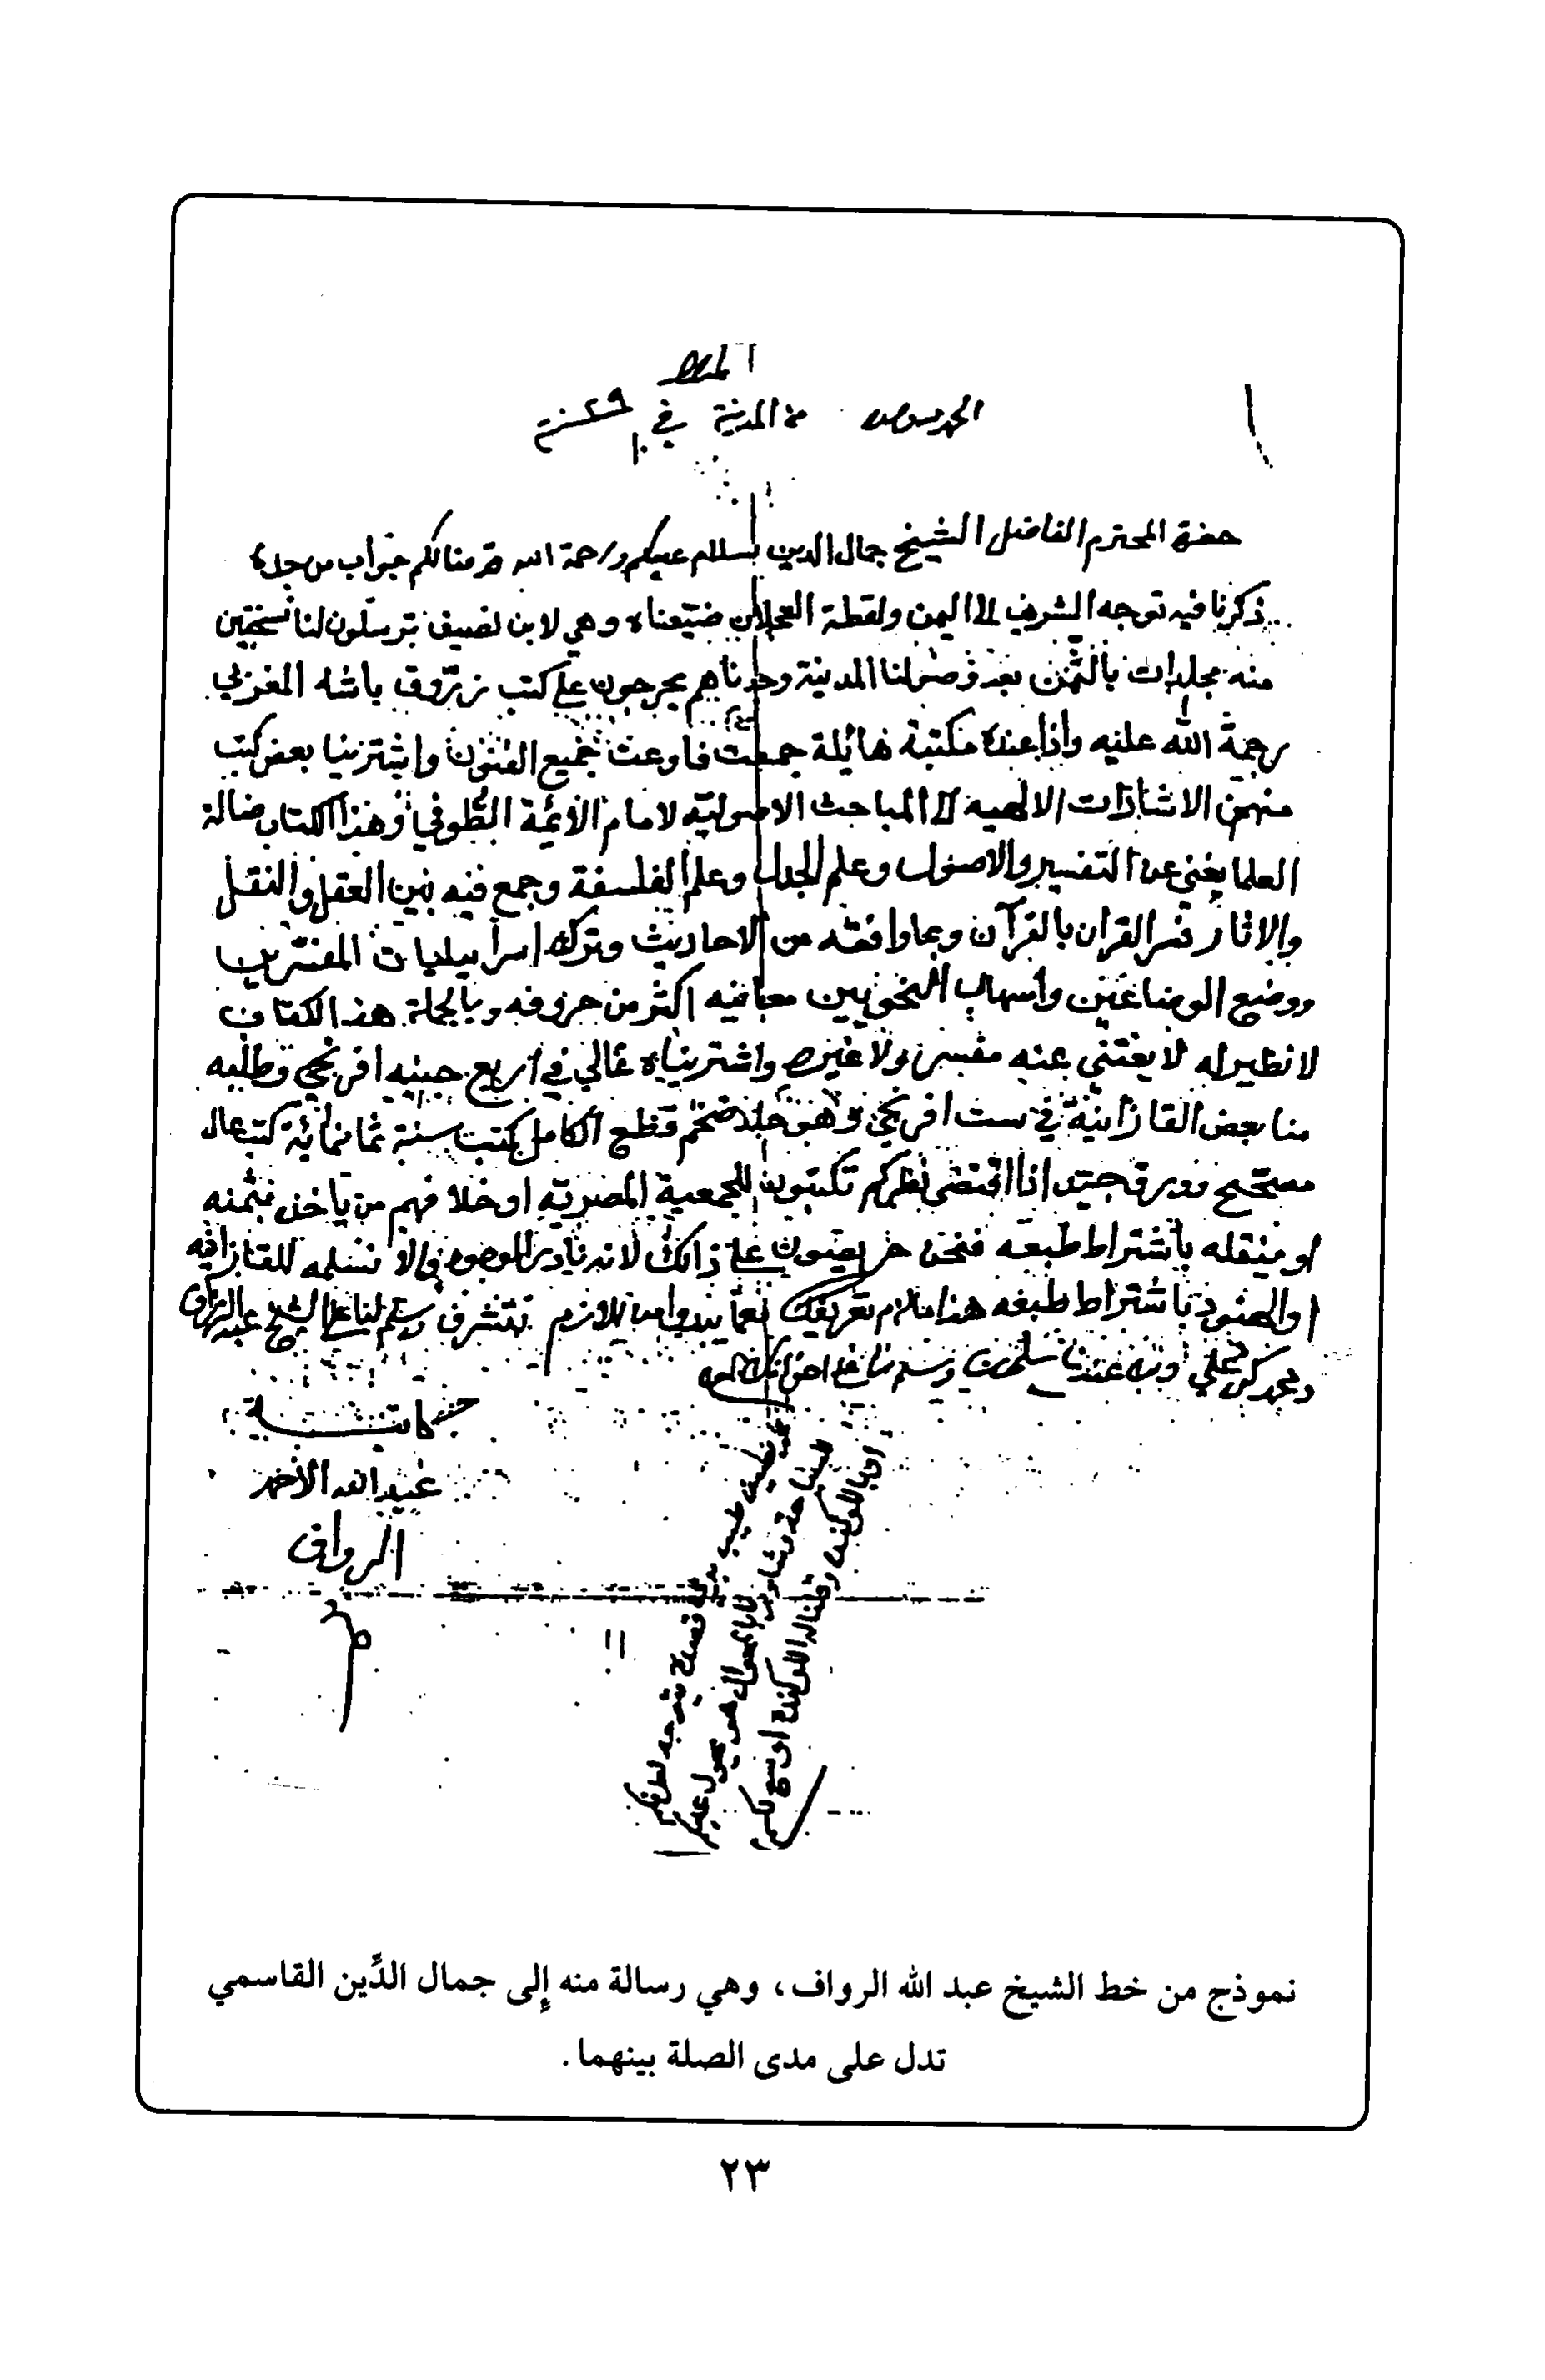 الحمد لله وحده من المدينة في
حضرة المحترم الفاضل الشيخ جمال الدين السلام عليكم ورحمة الله قدمنا لكم جواب من جدة
ذكرنا فيه توجه الشريف الى اليمن ولقطة العجلان ضيعناه وهي لابن نصيف ترسلون لنا نسختين
منه مجلدات بالثمن بعد وصولنا المدينة وجدناهم يحرجون على كتب زروق باشه المغربي
رحمة الله عليه واذا عنده مكتبة هايلة جمعت فاوعت جميع الفنون واشترينا بعض كتب
منهن الاشارات الالهية الى المباحث الاصولية لامام الائمة الطوفي وهذا الكتاب ضالة
العلما يغني عن التفسير والاصول وعلم الجدل وعلم الفلسفة وجمع فيه بين العقل والنقل
والاثار فسر القران بالقرآن وبما وافقه من الاحاديث وترك اسرائيليات المفسرين
ووضع الوضاعين واسهاب النحويين معانيه اكثر من حروفه وبالجملة هذا الكتاب
لا نظير له لا يغتني عنه مفسر ولا غيره واشتريناه غالي في اربع جنيه افرنجي وطلبه
منا بعض القازانية في ست افرنجي وهو جلد ضخم قطع الكامل كتبت سنة ثمانمائة كتب عال
مصحح وورق جيد اذا اقتضى نظركم تكتبون للجمعية المصرية او خلافهم من ياخذ بثمنه
او منقله باشتراط طبعه فنحن حريصون على ذالك لانه نادر الوجود والا نسلمه للقازانيه
او الهنود باشتراط طبعه هذا ما لزم تعريفك نعما يبدوا من اللازم نتشرف وسلم لنا على الشيخ عبد الرزاق
ومحمد كرد علي
كاتبه
عبد الله الاحمد
الرواف
نموذج من خط الشيخ عبد الله الرواف، وهي رسالة منه إلى جمال الدِّين القاسمي
تدل على مدى الصلة بينهما.
٢٣